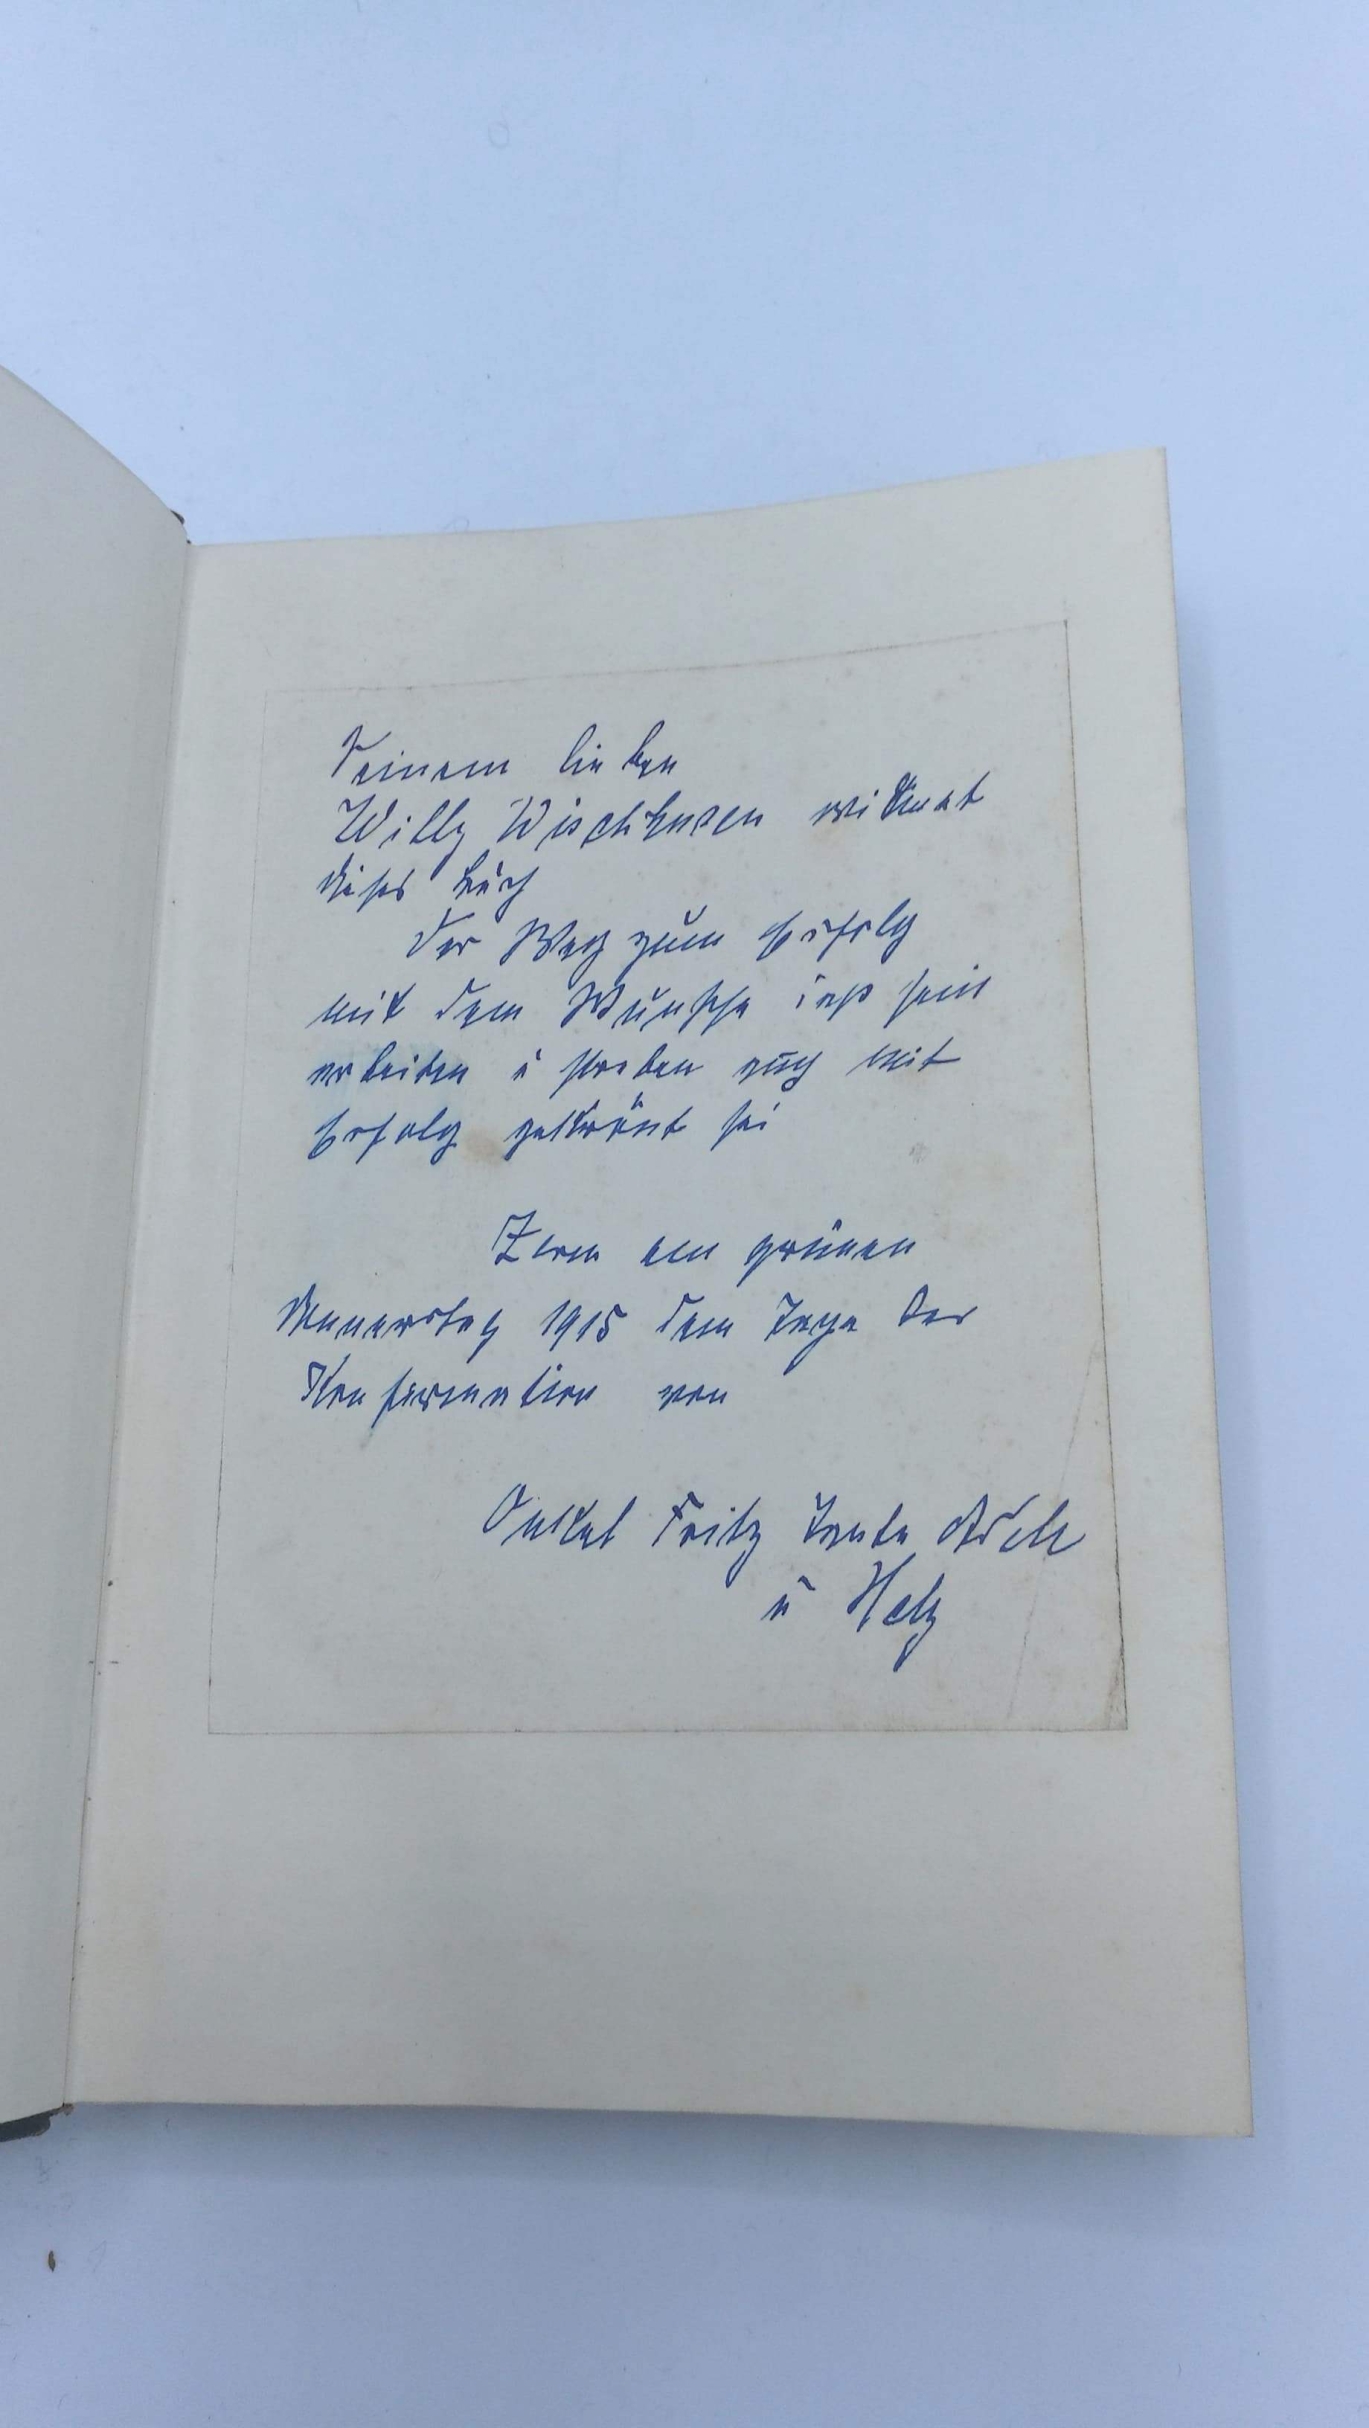 Seinem lieben
Willy Wischhusen widmet
dieses buch
Der Weg zum Erfolg
mit dem Wunsche das sein
arbeiten u streben auch mit
Erfolg gekrönt sei
am grünen
Donnerstag 1915 dem Tage der
Konfirmation von
Onkel Fritz Tante
u